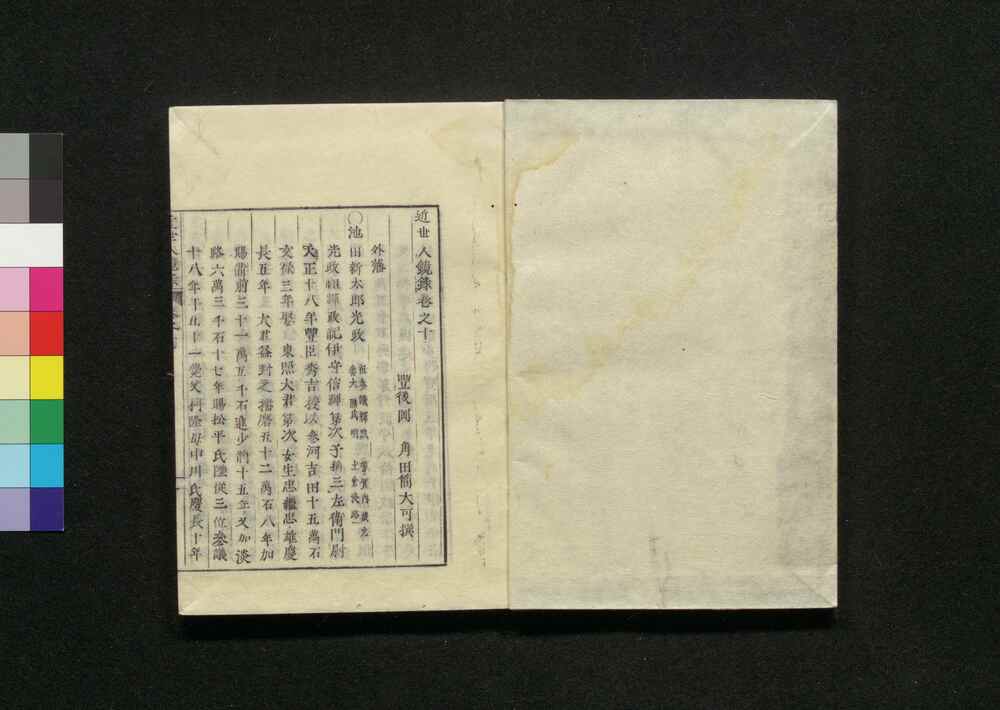 近世人鏡錄卷之十
豐後國 角田簡大可撰
外藩
○池田新太郎光政 祖參議輝政 芳賀內藏允 泰六 勝成明 土倉淡路
光政祖輝政記伊守信輝第次子稱三左衛門尉
天正十八年豐臣秀吉授以參河吉田十五萬石
文祿三年娶 東照大君第次女生忠繼忠雄慶
長五年 大君徙封之播磨五十二萬石八年加
賜備前三十一萬五千石進少將十五年又加淡
路六萬三千石十七年賜松平氏陞從三位參議
十八年年五十一薨父利隆母中川氏慶長十年